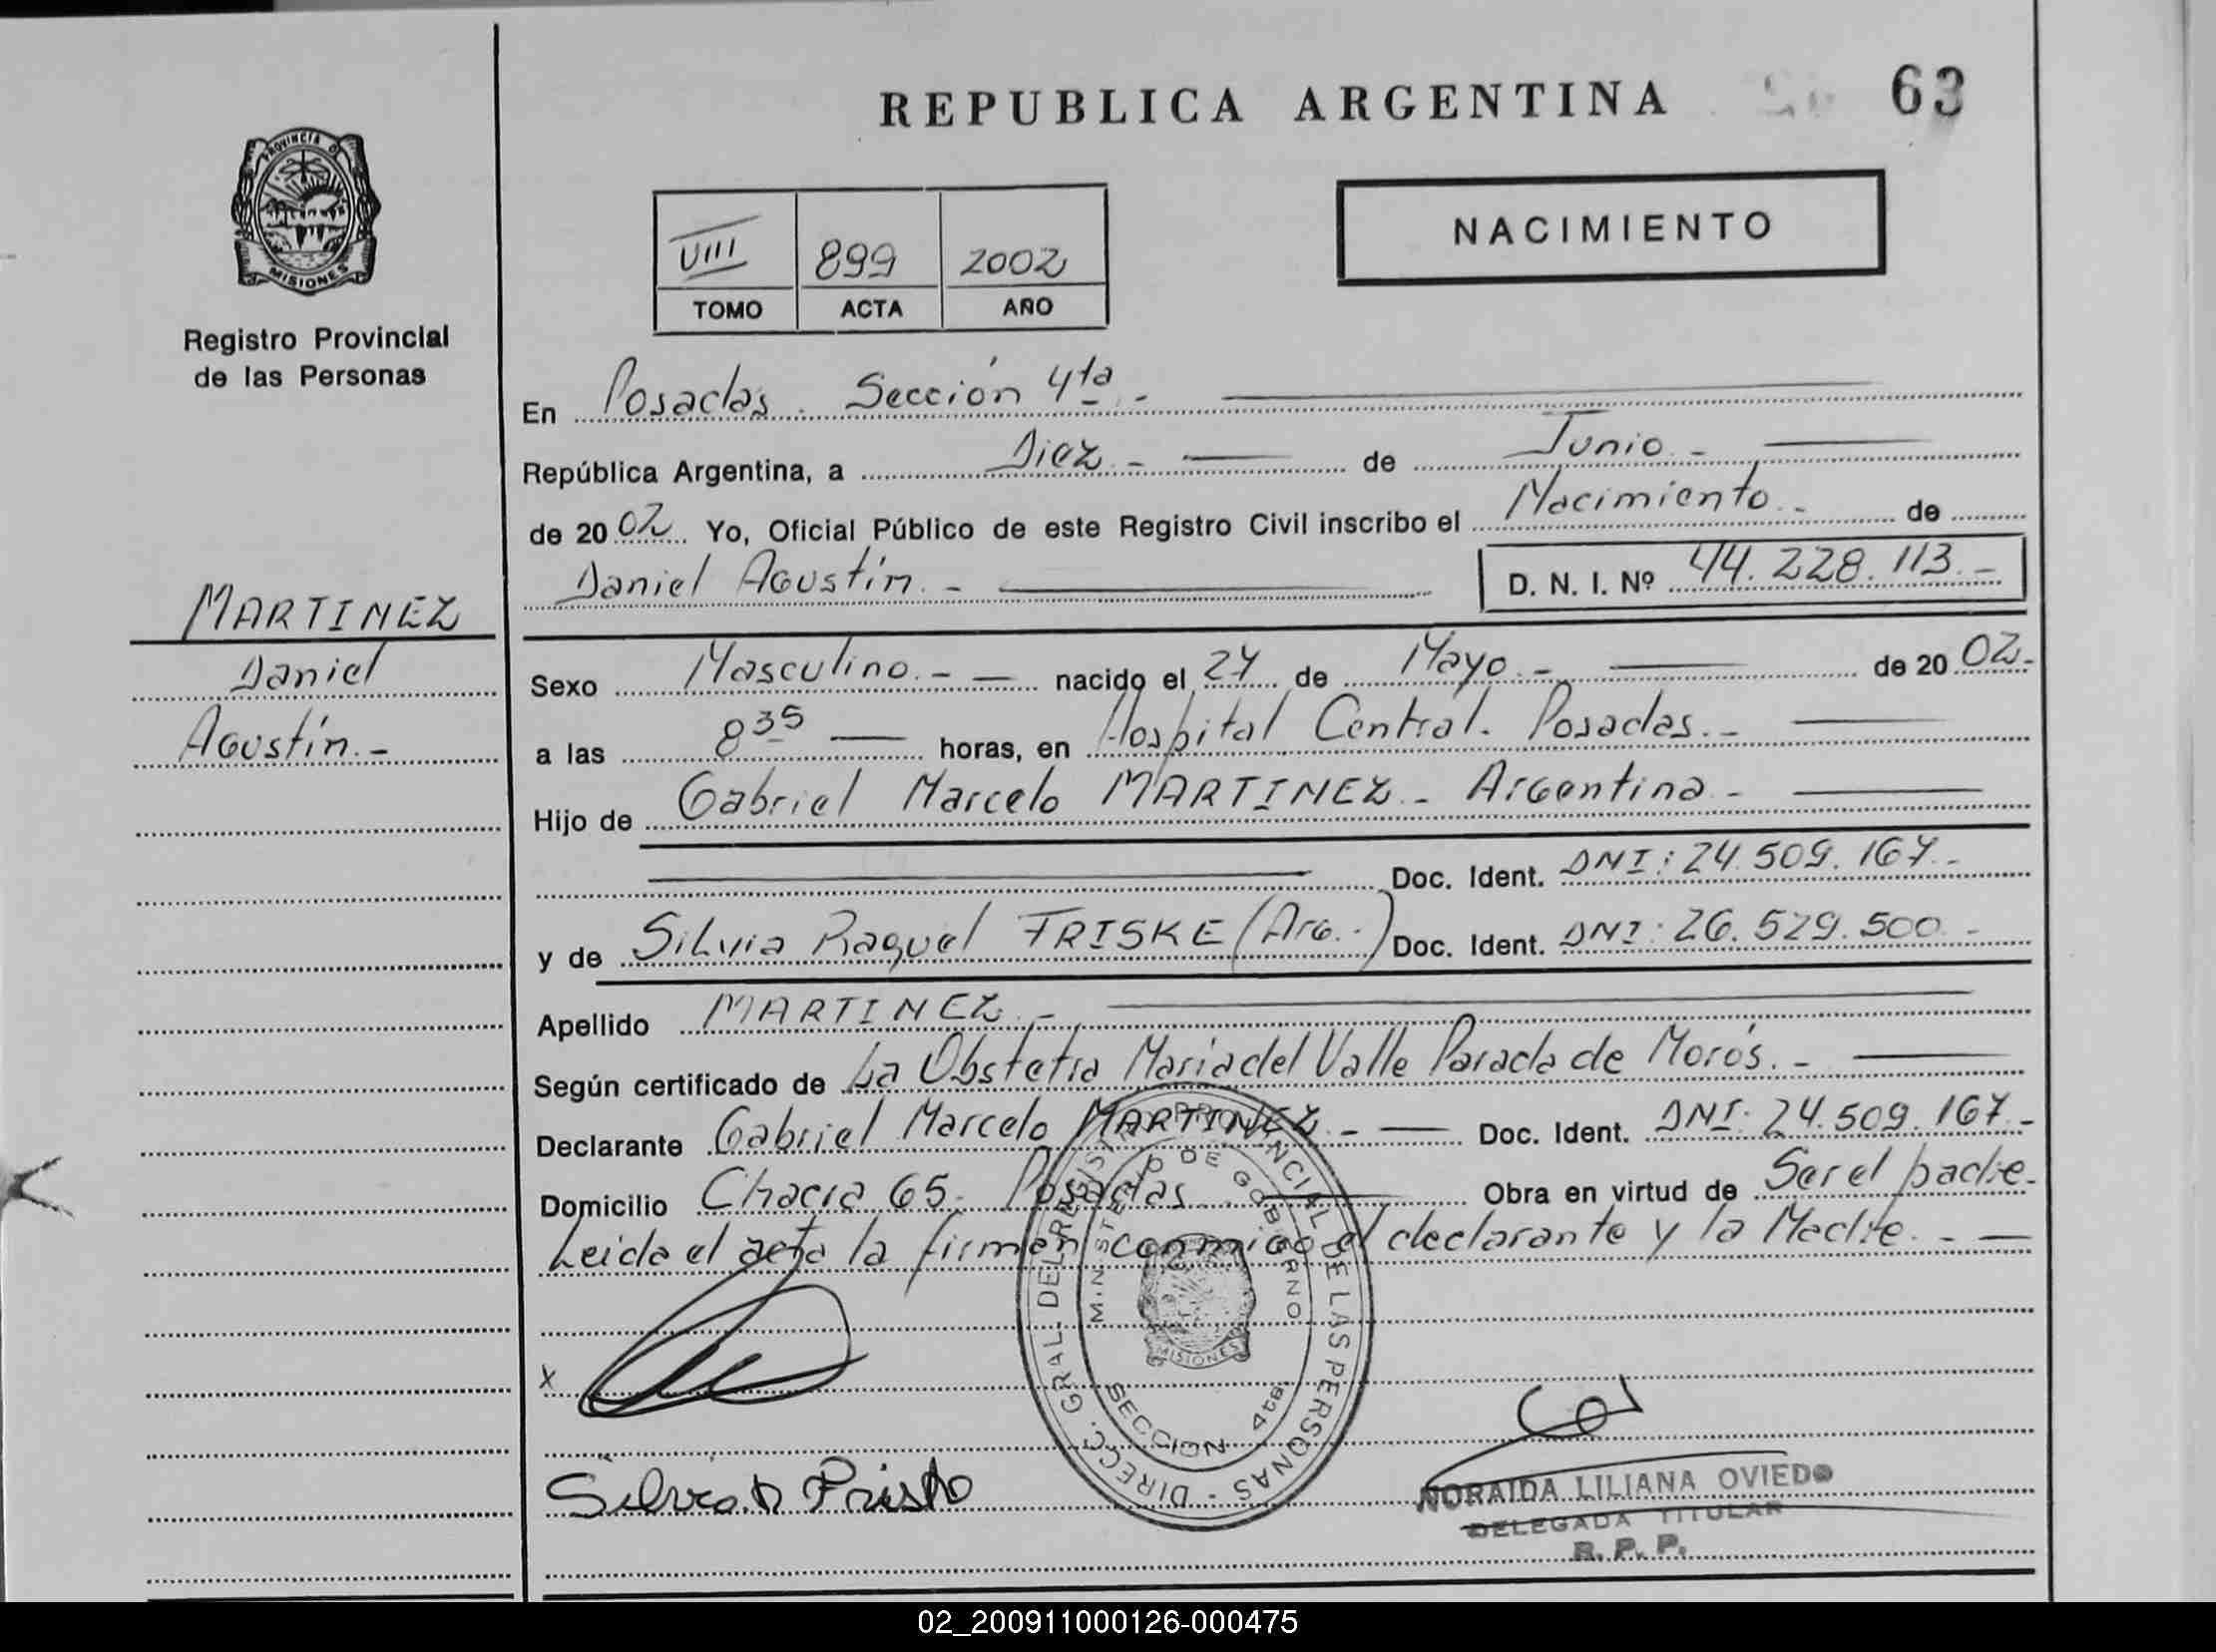 REPUBLICA ARGENTINA
63
PROVINCIA D
MISIONES
Registro Provincial
de las Personas
NACIMIENTO
VIII 899 2002
TOMO ACTA AÑO
En Posadas. Sección 4ta.-
República Argentina, a Diez.- de Junio.-
de 2002. Yo, Oficial Público de este Registro Civil inscribo el Nacimiento.- de
Daniel Agustín.- D. N. I. Nº 44.228.113.-
MARTINEZ
Daniel
Agustín.-
Sexo Masculino.- nacido el 27 de Mayo.- de 2002.-
a las 8 35 horas, en Hospital Central. Posadas.-
Hijo de Gabriel Marcelo MARTINEZ.- Argentina.-
Doc. Ident. DNI: 24.509.167.-
y de Silvia Raquel FRISKE (Arg.-) Doc. Ident. DNI: 26.529.500.-
Apellido MARTINEZ.-
Según certificado de La Obstetra Maria del Valle Parada de Morós.-
Declarante Gabriel Marcelo MARTINEZ.- Doc. Ident. DNI: 24.509.167.-
Domicilio Chacra 65. Posadas. Obra en virtud de Ser el padre.-
Leida el acta la firman conmigo el declarante y la Madre.-
DIRECC. GRAL. DEL REGISTRO PROVINCIAL DE LAS PERSONAS -
MINISTERIO DE GOBIERNO
MISIONES
SECCION 4ta.
X
NORAIDA LILIANA OVIEDO
DELEGADA TITULAR
R. P. P.
02_200911000126-000475